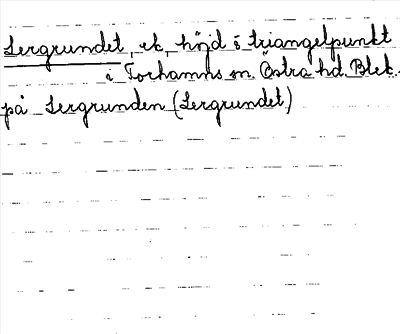 Lergrundet, ek. höjd o triangelpunkt
i Torhamns sn. Östra hd. Blek.
på Lergrunden (Lergrundet)